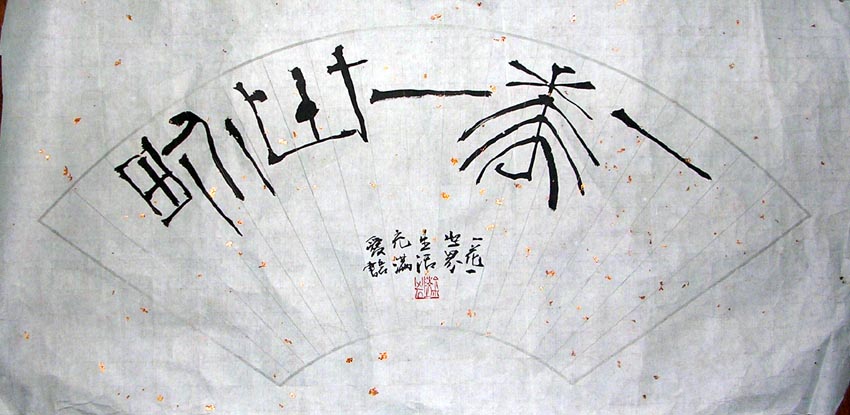 一花一世界
一花一
世界
生活
充滿
愛